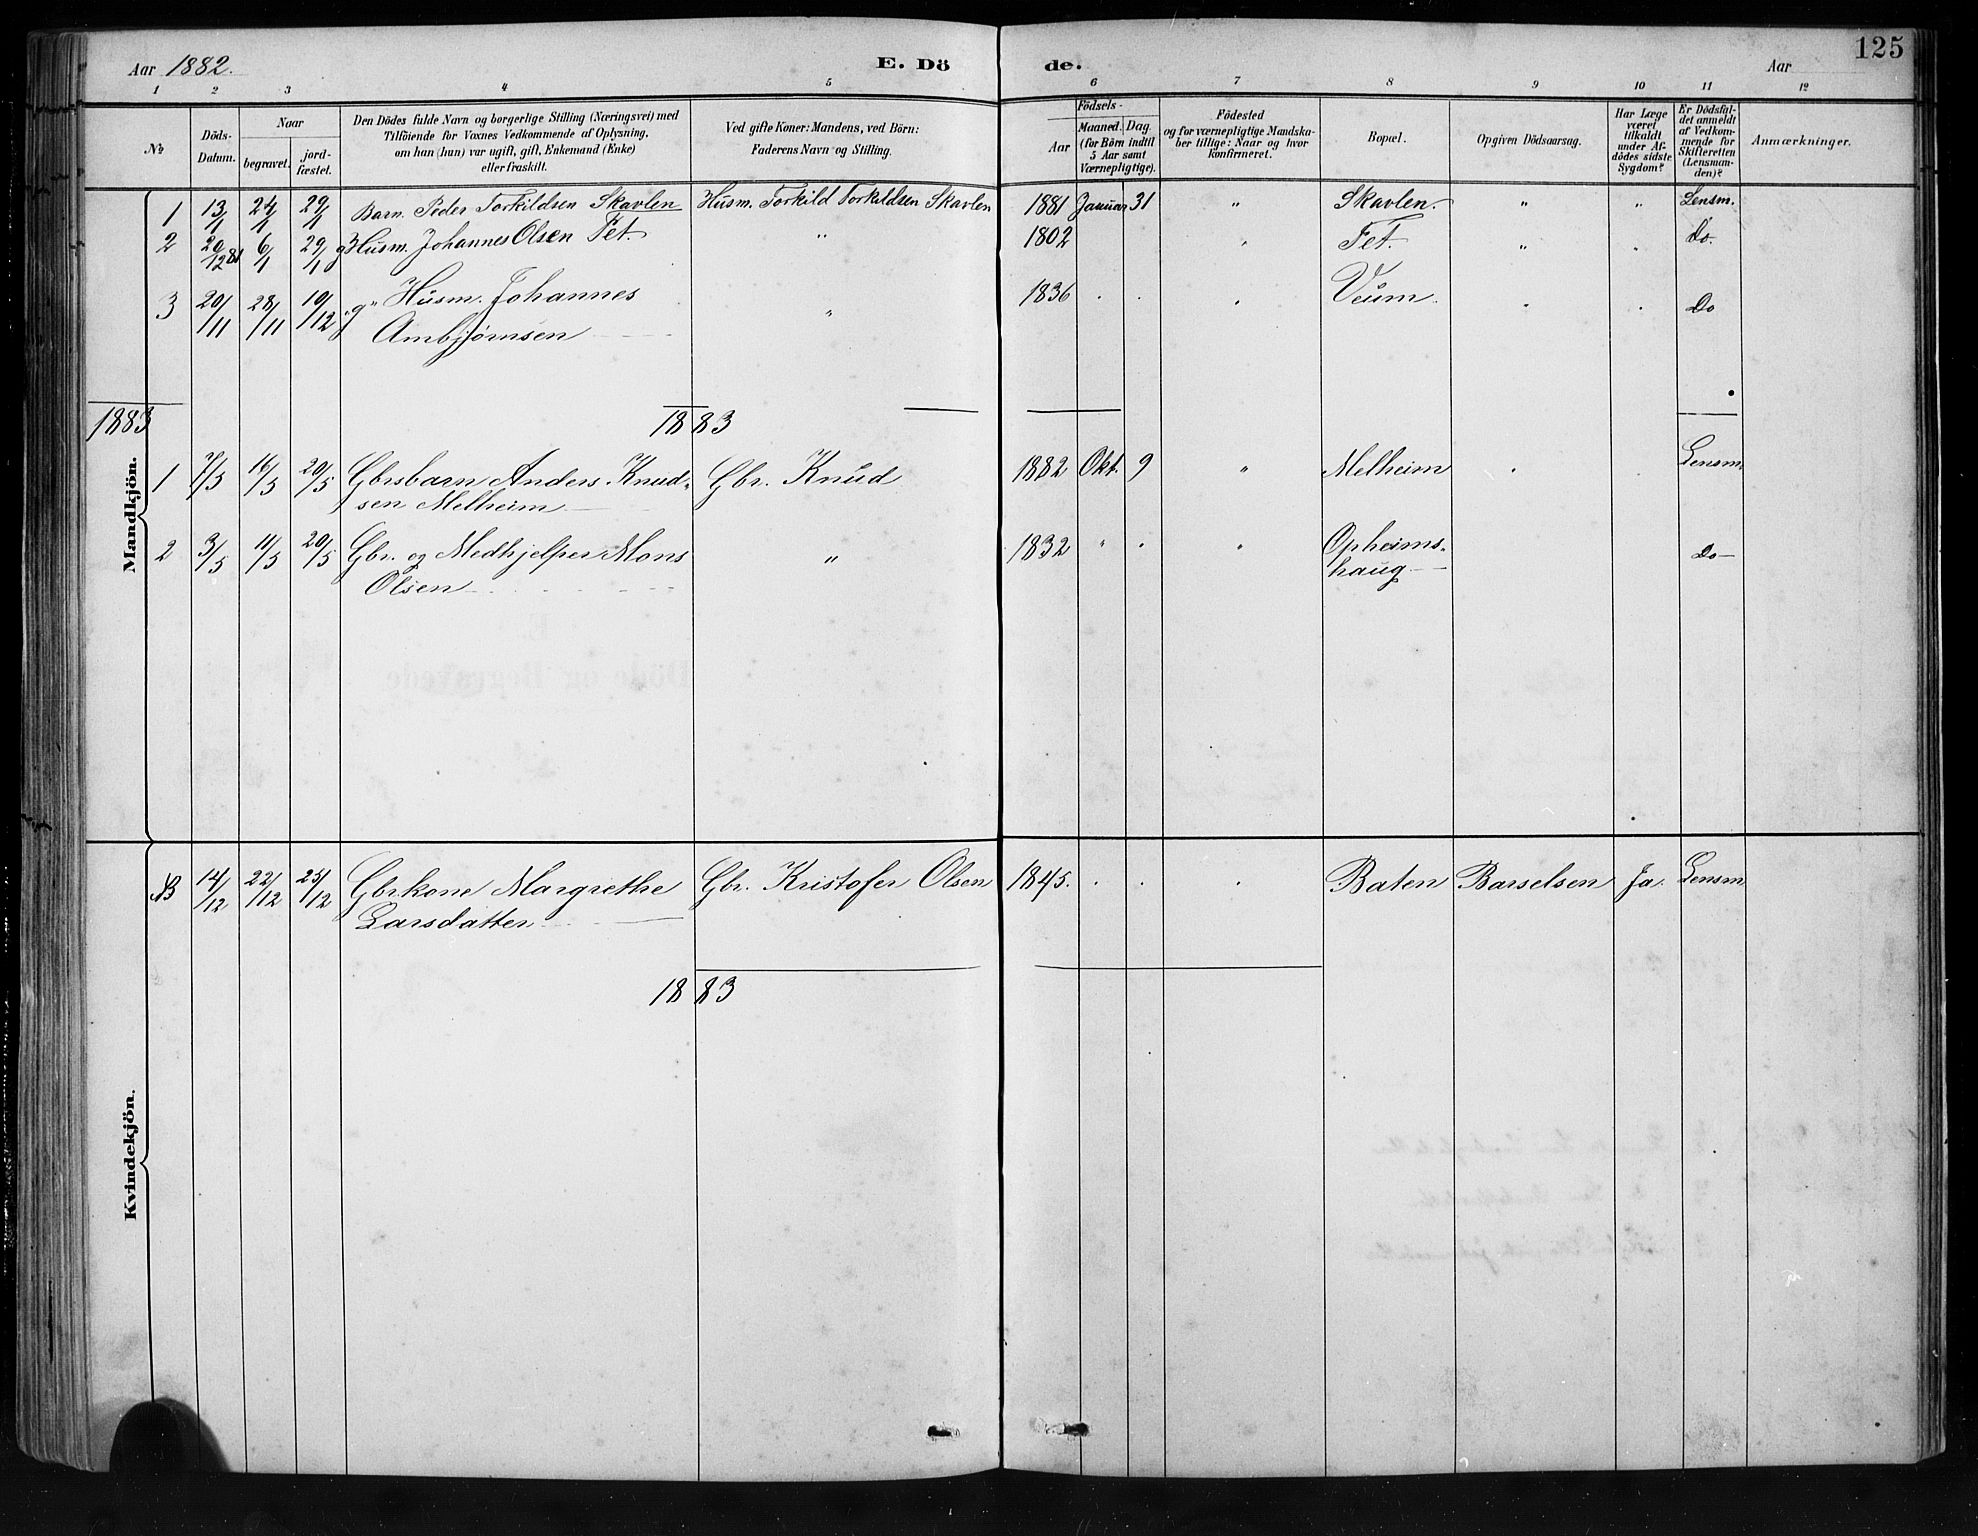 Aar 1882.
E. Dö
de.
Aar
125
1 2 3 4 5 6 7 8 9 10 11 12
№
Döds-Datum.
Naar
begravet.
jord-fæstet.
Den Dödes fulde Navn og borgerlige Stilling (Næringsvei) med
Tilföiende for Voxnes Vedkommende af Oplysning,
om han (hun) var ugift, gift, Enkemand (Enke)
eller fraskilt.
Ved gifte Koner: Mandens, ved Börn:
Faderens Navn og Stilling.
Födsels-
Aar
Maaned. Dag
(for Börn indtil
5 Aar samt
Værnepligtige).
Födested
og for værnepligtige Mandska-
ber tillige: Naar og hvor
konfirmeret.
Bopæl.
Opgiven Dödsaarsag.
Har Læge
været
tilkaldt
under Af-
dödes sidste
Sygdom?
Er Dödsfal-
det anmeldt
af Vedkom-
mende for
Skifteretten
(Lensman-
den)?
Anmærkninger.
Mandkjön.
1 13/1 24/1 29/1 Barn. Peder Torkildsen Skavlen Husm. Torkild Torkildsen Skavlen 1881 Januar 31 " Skavlen. " " Lensm.
2 20/12 81 6/1 29/1 g Husm. Johannes Olsen Fet. " 1802 " Fet. " " Do.
3 20/11 28/11 10/12 "g" Husm. Johannes " 1836 . . " Veum. " . Do
Ambjørnsen
1883 1883
1 7/5 16/5 20/5 Gbrsbarn Anders Knud- Gbr. Knud 1882 Okt. 9 " Melheim " Lensm.
sen Melheim
2 3/5 11/5 20/5 Gbr. og Medhjelper Mons " 1832 " " " Opheims- Do
Olsen haug
Kvindekjön.
14/12 22/12 25/12 Gbrkone Margrethe Gbr. Kristofer Olsen 1845. . . " Baten Barselsen Ja. Lensm
Larsdatter
1883